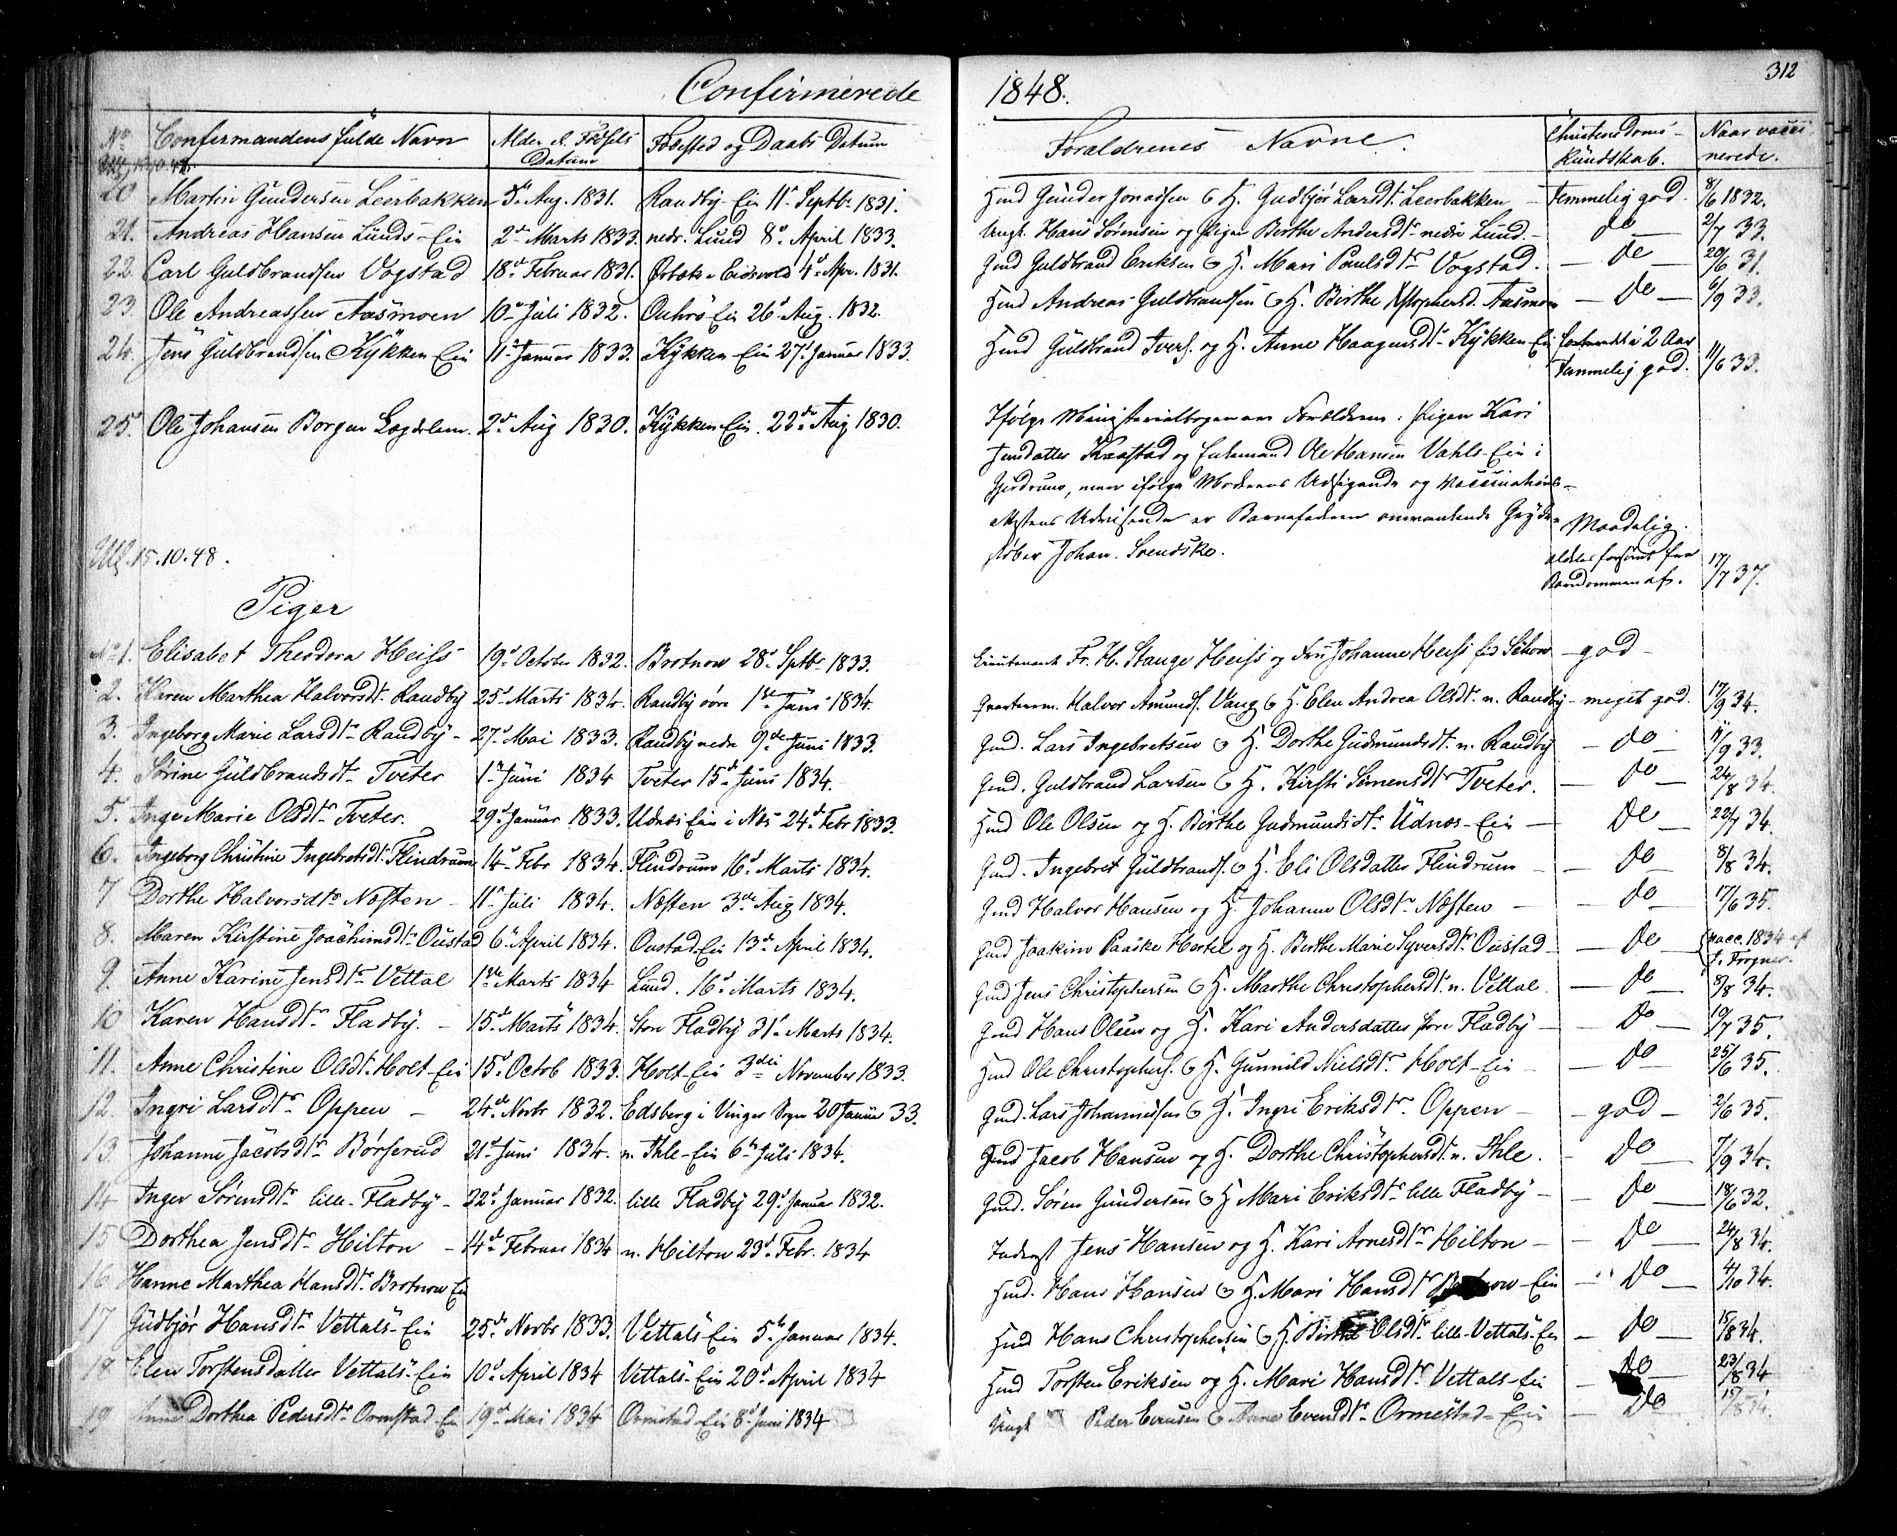 Confirmerede 1848.
312
No Confirmandens fulde Navn Alder d. Fødsels Datum Fødested og Daabs Datum Forældrenes Navne. Christendoms-Kundskab. Naar vaccinerede.
20 Martin Gundersen Leerbakken Aug. 1831. Randby Ein 11 Septb. 1831. Gunder Jonassen H. Gudbjør Larsdtr Leerbakken - Temmelig god. 8/6 1832.
21. Andreas Hansen Lunds-Ein 2d Marts 1833. nedr. Lund 8d April 1833. Ungk. Hans Sørensen og Pigen Birthe Andersdtr nedre Lund. - do - 2/7 33.
22. Carl Guldbrandsen Vogstad 18d Februar 1831. Eidsvold 4d Apr. 1831. Gmd Guldbrand Eriksen & H. Mari Paulsdtr Vogstad. - do - 20/6 31.
23. Ole Andreassen Aasmoen 10d Juli 1832. Ein 26d Aug. 1832. Hmd Andreas Guldbrandsen & H. Birthe Xstophersd. Aasmoen - do - 6/9 33.
24. Jens Guldbrandsen Kykken Ein 11d Januar 1833. Kykken Ein 27d Januar 1833. Hmd Guldbrand Ivers. og H. Anne Haagensdtr Kykken Ein i 2 Aar
Temmelig god. 11/6 33.
25. Ole Johansen Borgen Lægdslem. 2d Aug 1830. Kykken Ein. 22de Aug 1830. Ifølge Ministerialbogen ere Forældrene: Pigen Kari
Jensdatter Kaastad og Enkemand Ole Hansen Vahls-Ein i
Gjerdrum, men ifølge Moderens Udsigende og Vaccinations-
Attestens Udvisende er Barnefaderen omvankende Gryde-
støber Johan Svendske. Maadelig.
forsømt fra
Barndommen af. 17/7 37.
15.10.48.
Piger
No 1. Elisabet Theodora Heiss 19d October 1832. Brotnow 28d Septbr 1833. Lieutenant Fr. H. Stange Heiss og Fru Johanne Heiss fød - god -
2. Karen Marthea Halvorsdtr Randby 25d Marts 1834. Randby øvre 1ste Juni 1834. Halvor Amunds. Vang & H. Elen Andrea Olsdtr n. Randby - meget god. 17/9 34.
3. Ingeborg Marie Larsdtr Randby - 27d Mai 1833. Randby nedre 9de Juni 1833. Gmd. Lars Ingebretsen & H. Dorthe Gudmundsdtr n. Randby - do - 11/9 33.
4. Sørine Guldbrandsdtr Tveter 1d Juni 1834 Tveter 15d Juni 1834. Gmd. Guldbrand Larsen & H. Kirsti Simensdtr Tveter. - do - 24/8 34.
5. Inge Marie Olsdtr Tveter. 29d Januar 1833. Udnæs Ein i Næs 24d Febr 1833. Hmd Ole Olsen og H. Birthe Gudmundsdtr Udnæs-Ein - do - 22/7 34.
6. Ingeborg Christine Ingebretsdtr Flindrum 14d Febr 1834. Flindrum 16d Marts 1834. Gmd. Ingebret Guldbrands. & H. Eli Olsdatter Flindrum - do - 8/8 34.
7 Dorthe Halvorsdtr Næsten - 11d Juli 1834. Næsten 3die Aug 1834. Gmd Halvor Hansen og H. Johanne Olsdtr Næsten - do - 17/6 35.
8. Maren Kirstine Joachimsdtr Oustad 6d April 1834. Oustad-Ein 13de April 1834. Gmd Joakim Paaske Hertel og H. Birthe Marie Syversdtr Oustad - do - vacc. 1834 af
Frogner.
9. Anne Karine Jensdtr Vettal 1ste Marts 1834 Lund. 16d Marts 1834. Gmd Jens Christophersen & H. Marthe Christophersdtr n. Vettal. - do - 8/8 34.
10 Karen Hansdtr Fladby. - 15d Marts 1834. Store Fladby 31d Marts 1834. Gmd Hans Olsen og H. Kari Andersdatter store Fladby - do - 19/7 35.
11. Anne Christine Olsdtr Holt-Ein 15d Octob 1833. Holt-Ein 3die November 1833. Hmd Ole Christophers. & H. Gunnild Nielsdtr Holt-Ein - do - 25/6 35.
12. Ingri Larsdtr Oppen - 24de Novbr 1832. Edsberg i Vinger Sogn 20 Januar 33. Gmd. Lars Johannessen & H. Ingri Eriksdtr Oppen - - god - 2/6 35.
13. Johanne Jacobsdtr Børserud 21d Juni 1834. n. Ihle-Ein 6te Juli 1834. Hmd Jacob Hansen og H. Dorthe Christophersdtr n. Ihle. - do - 7/9 34.
14 Inger Sørensdtr lille Fladby - 22d Januar 1832. lille Fladby 29d Januar 1832. Gmd. Søren Gundersen & H. Mari Eriksdtr lille Fladby - do - 18/6 32.
15 Dorthea Jensdtr Hilton - 14de Februar 1834 n. Hilton 23d Febr. 1834 Inderst Jens Hansen og H. Kari Arnesdtr Hilton - - do - 24/8 34.
16 Hanne Marthea Hansdtr Brotnow Ein Hmd. Hans Hansen & H. Mari Hansdtr Brotnow-Ein - do - 4/10 34.
17 Gudbjør Hansdtr Vettals-Ein 25de Novbr 1833. Vettals-Ein 5te Januar 1834. Hmd Hans Christophersen & H. Birthe Olsdtr lille-Vettals-Ein - do - 15/8 34.
18 Elen Torstensdatter Vettals-Ein 10d April 1834 Vettals-Ein 20d April 1834 Hmd Torsten Eriksen og H. Mari Hansdtr Vettals-Ein - do 23/8 34
19 Anne Dorthea Pedersdtr Ormstad-Ein 19d Mai 1834 Ormstad-Ein 8d Juni 1834 Ungk Peder & Anne Evensdtr Ormestad-Ein - do